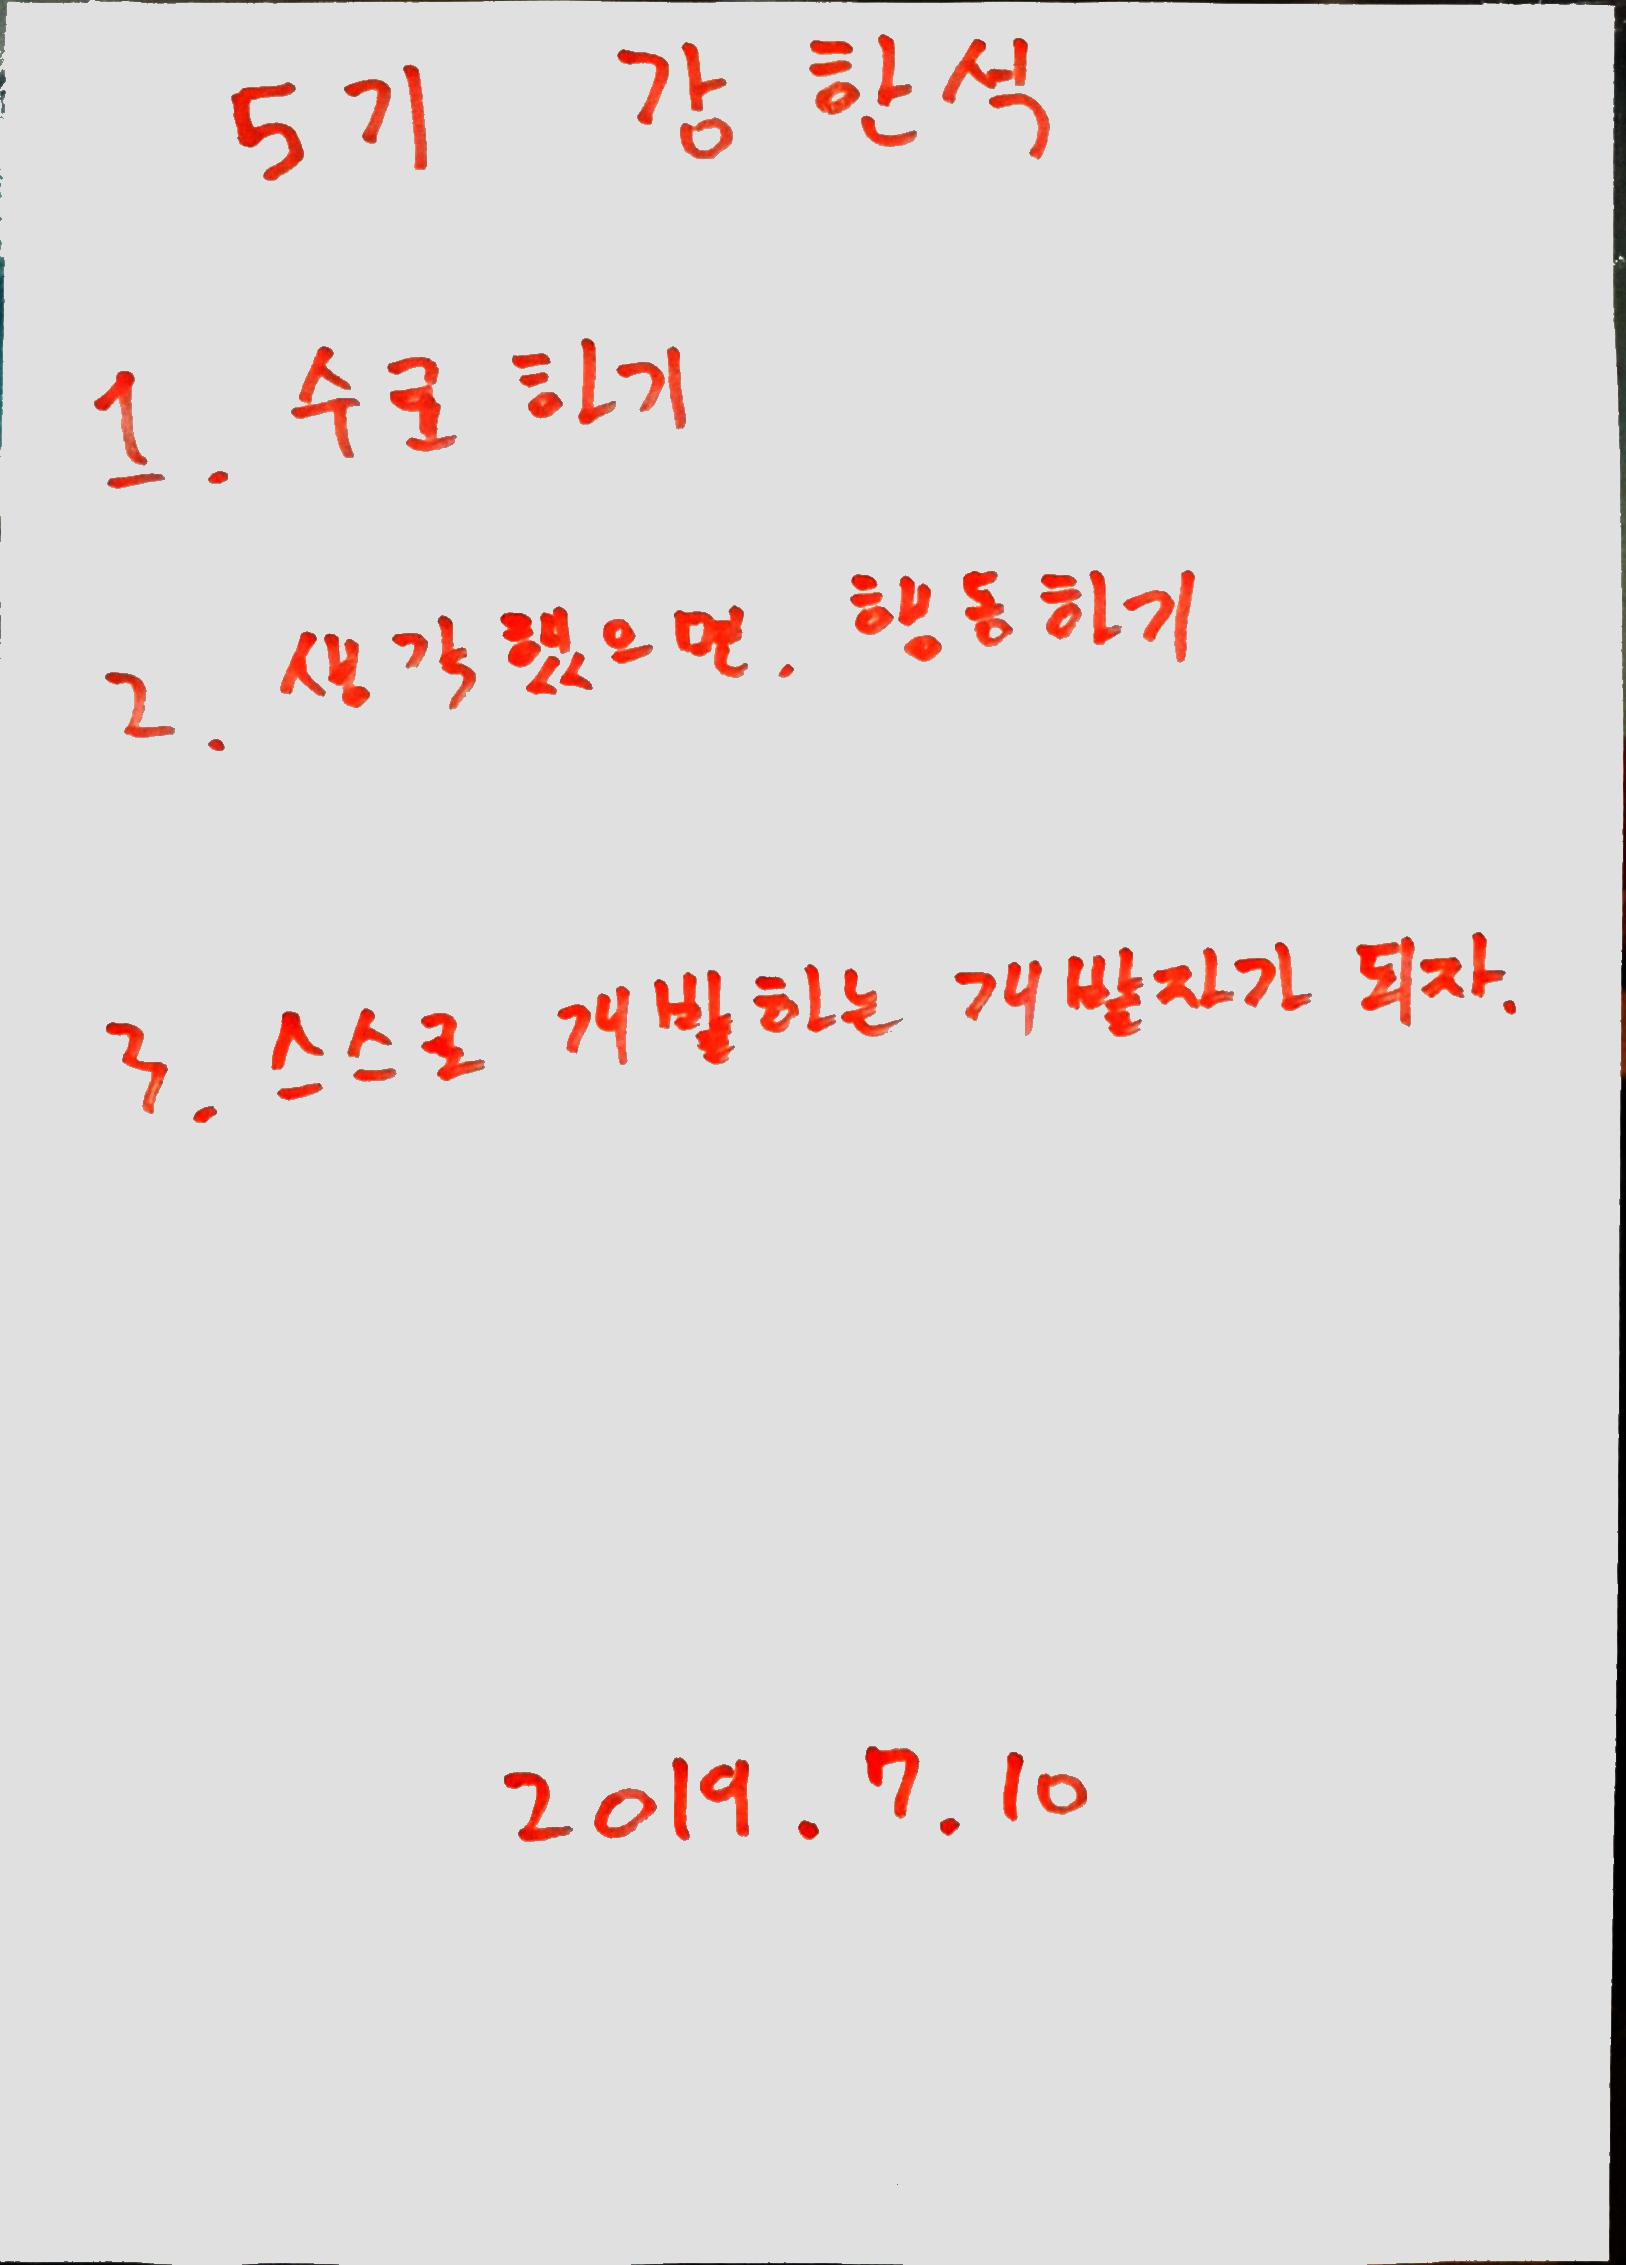 5기 강한석
1. 수료 하기
2. 생각했으면. 행동하기
3. 스스로 개발하는 개발자가 되자.
2019.7.10